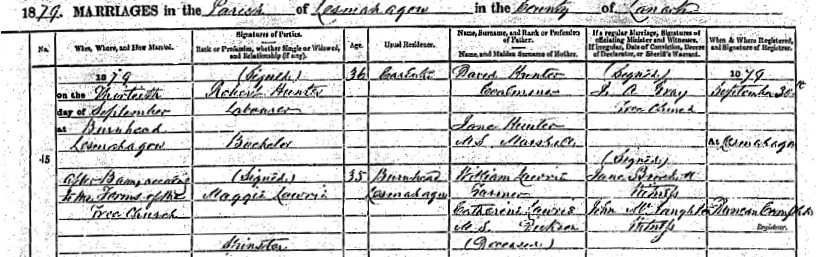 1879. MARRIAGES in the Parish of Lesmahagow in the County of Lanark
No.
When, Where, and How Married.
Signatures of Parties.
Rank or Profession, whether Single or Widowed, and Relationship (if any).
Age.
Usual Residence.
Name, Surname, and Rank or Profession of Father.
Name, and Maiden Surname of Mother.
If a regular Marriage, Signatures of officiating Minister and Witnesses.
If irregular, Date of Conviction, Decree of Declarator, or Sheriff's Warrant.
When & Where Registered, and Signature of Registrar.
15
1879
on the Thirtieth
day of September
at Burnhead
Lesmahagow
After Banns according
to the Forms of the
Free Church
(Signed)
Robert Hunter
Labourer
Bachelor
(Signed)
Maggie Lawrie
Spinster
36
35
Burnhead
Lesmahagow
David Hunter
Coalminer
Jane Hunter
M.S. Marshall
William Lawrie
Catherine Lawrie
M.S.
(Deceased)
(Signed)
J. A. Gray
Free Church
(Signed)
Jane
Witness
John McNaughton
Witness
1879
September 30th
At Lesmahagow
Registrar.